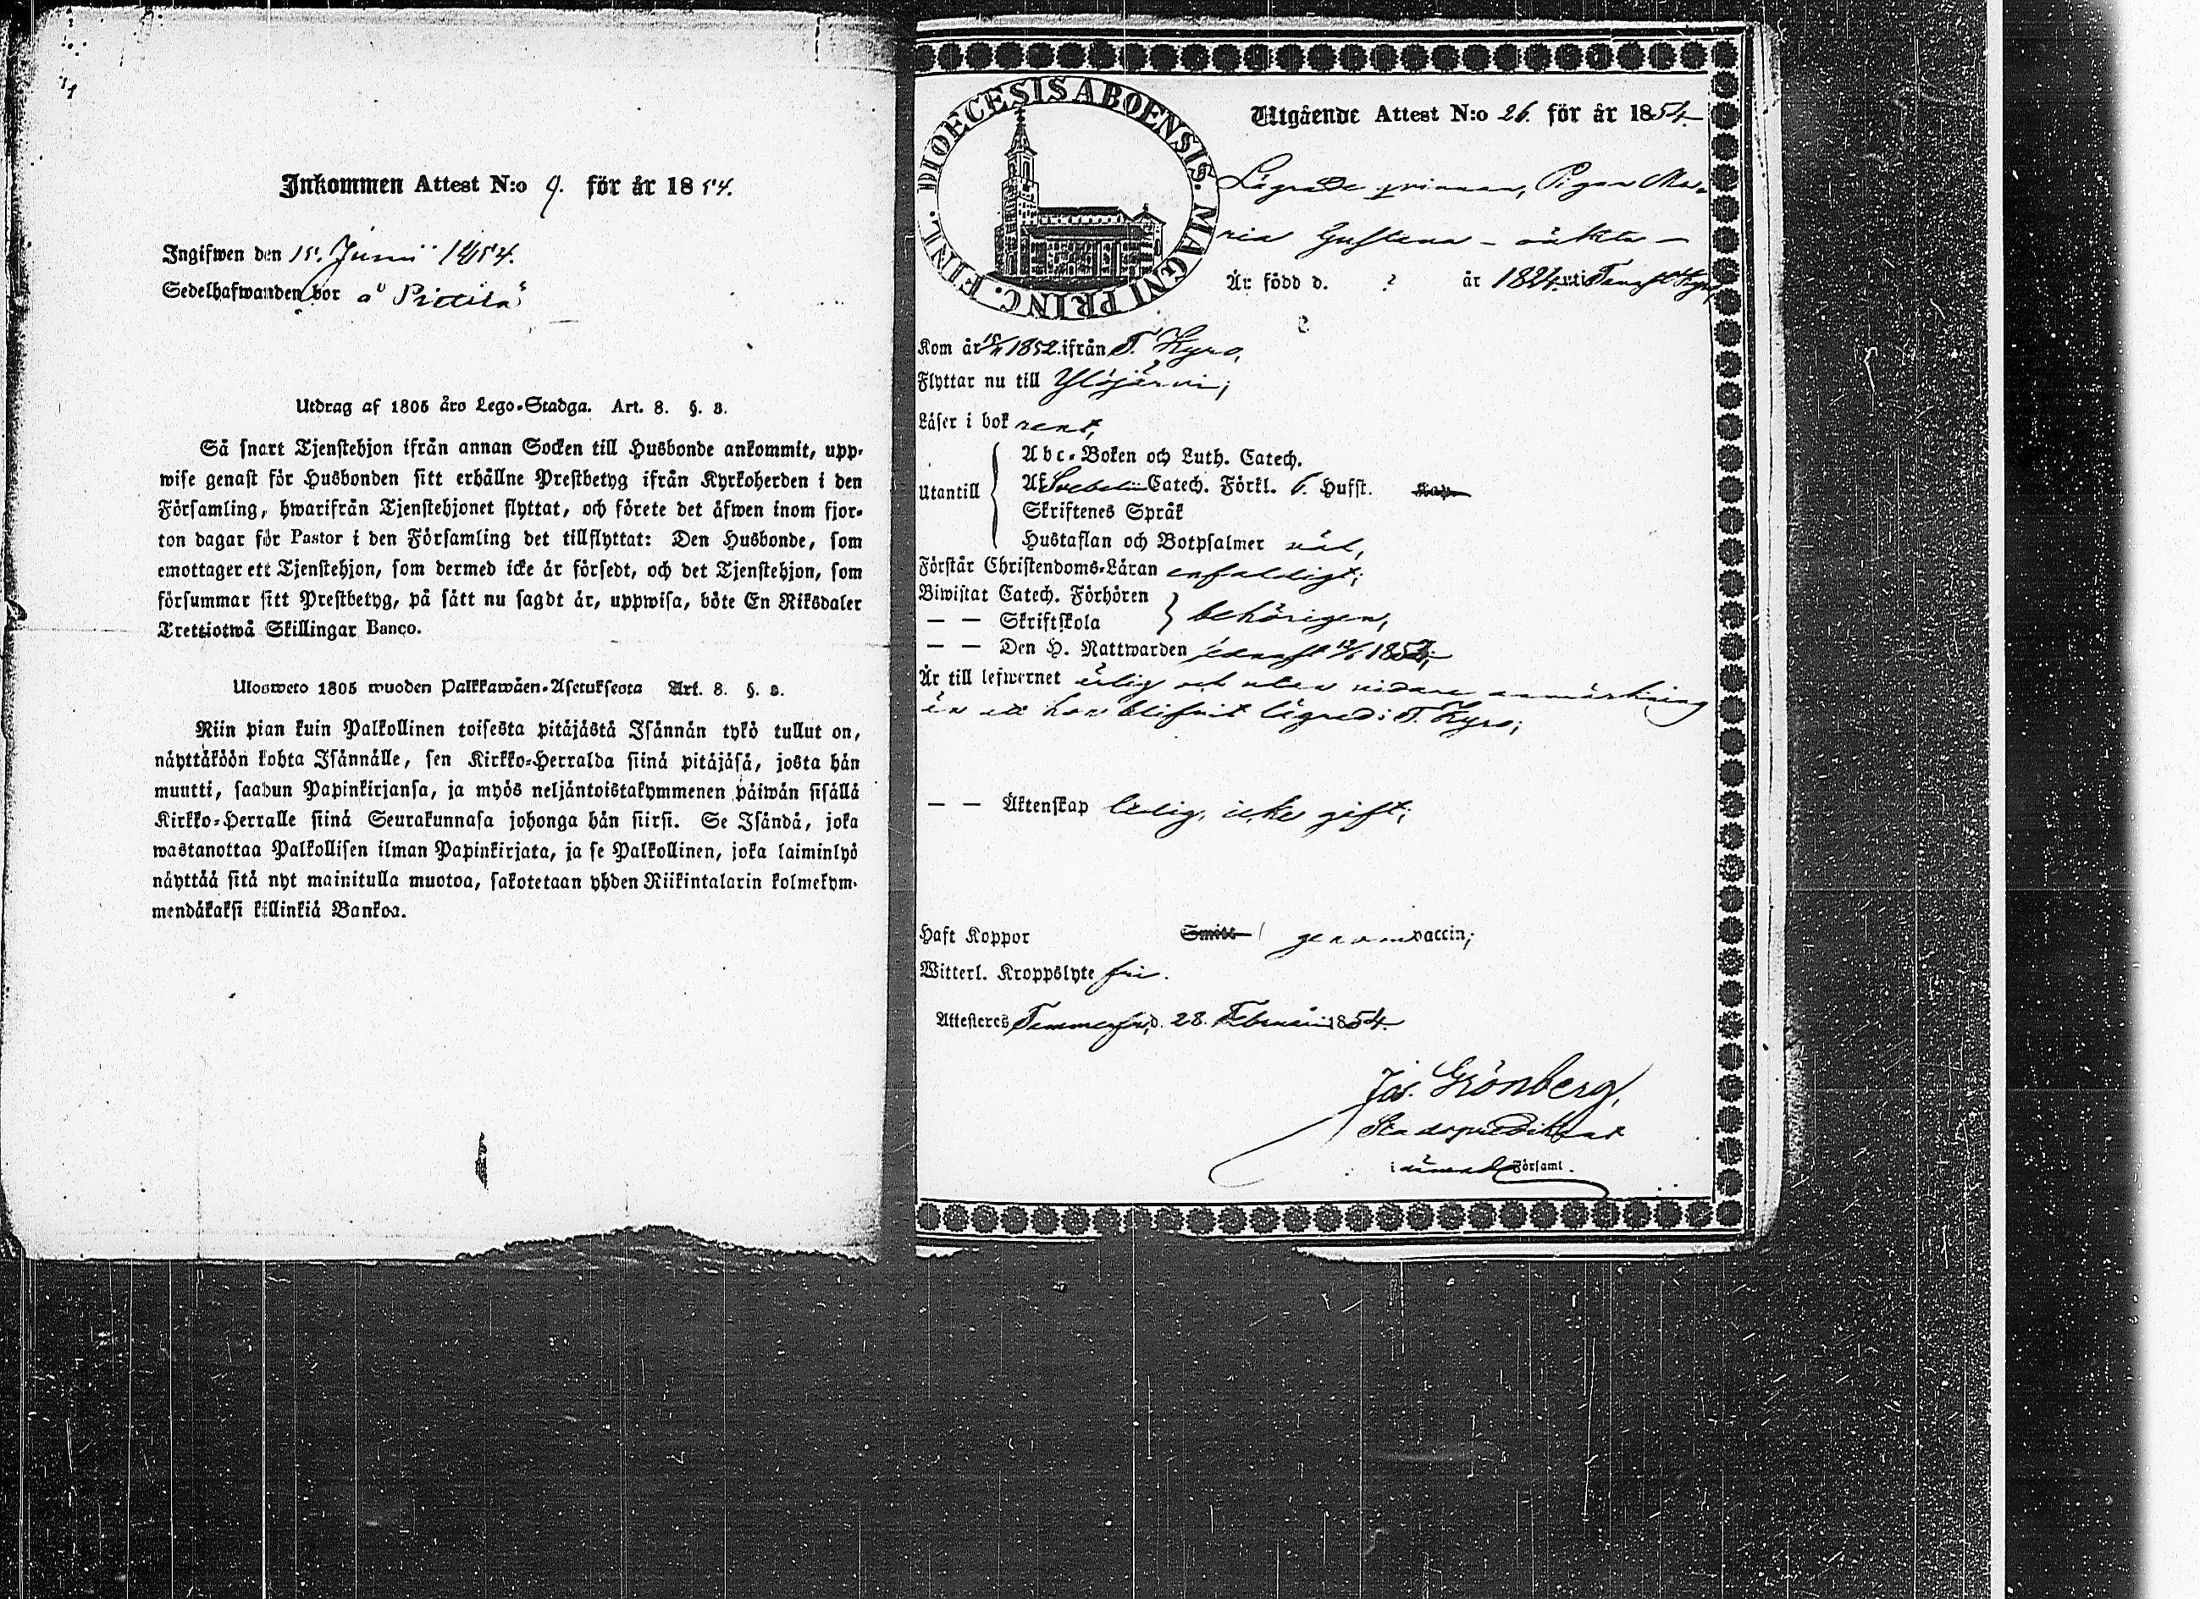 Inkommen Attest N:o 9. för år 1854.
Ingifwen den 15. Junii 1854.
Sedelhafwanden bor å Pittilä
Utdrag af 1805 års Lego-Stadga. Art. 8. §. 3.
Så snart Tjenstehjon ifrån annan Socken till Husbonde ankommit, upp-
wise genast för Husbonden sitt erhållne Prestbetyg ifrån Kyrkoherden i den
Församling, hwarifrån Tjenstehjonet flyttat, och förete det äfwen inom fjor-
ton dagar för Pastor i den Församling det tillflyttat: Den Husbonde, som
emottager ett Tjenstehjon, som dermed icke är försedt, och det Tjenstehjon, som
försummar sitt Prestbetyg, på sätt nu sagdt är, uppwisa, böte En Riksdaler
Trettiotwå Skillingar Banco.
Ulosweto 1805 wuoden Palkkawäen-Asetuksesta Art. 8. §. 3.
Niin pian kuin Palkollinen toisesta pitäjästä Isännän tykö tullut on,
näyttäköön kohta Isännälle, sen Kirkko-Herralda siinä pitäjäsä, josta hän
muutti, saadun Papinkirjansa, ja myös neljäntoistakymmenen päiwän sisällä
Kirkko-Herralle siinä Seurakunnasa johonga hän siirsi. Se Isändä, joka
wastanottaa Palkollisen ilman Papinkirjata, ja se Palkollinen, joka laiminlyö
näyttää sitä nyt mainitulla muotoa, sakotetaan yhden Riikintalarin kolmekym-
mendäkaksi killinkiä Bankoa.
DIOECESIS ABOENSIS. MAGNI PRINC. FINL.
Utgående Attest N:o 26. för år 1854.
Lägrade qvinnan, Pigan Ma-
ria Gustava – oäkta –
Är född d. ? år 1824. uti Tavast Kyro
Kom år 1852. ifrån T. Kyro,
Flyttar nu till Ylöjärvi;
Läser i bok rent,
Abc-Boken och Luth. Catech.
Utantill Af Svebelii Catech. Förkl. 6. Hufst. Kap.
Skriftenes Språk
Hustaflan och Botpsalmer väl,
Förstår Christendoms-Läran enfaldigt;
Biwistat Catech. Förhören
— — Skriftskola behörigen,
— — Den H. Nattwarden senast 1853;
Är till lefwernet ärlig och utan vidare anmärkning
än att hon blifvit lägrad i T. Kyro;
— — Äktenskap ledig, icke gift;
Haft Koppor Smitt genom vaccin;
Witterl. Kroppslyte fri.
Attesteres Tammerfors, d. 28. Februarii 1854.
Jos. Grönberg,
Stadspredikant
i nämnde Församl.